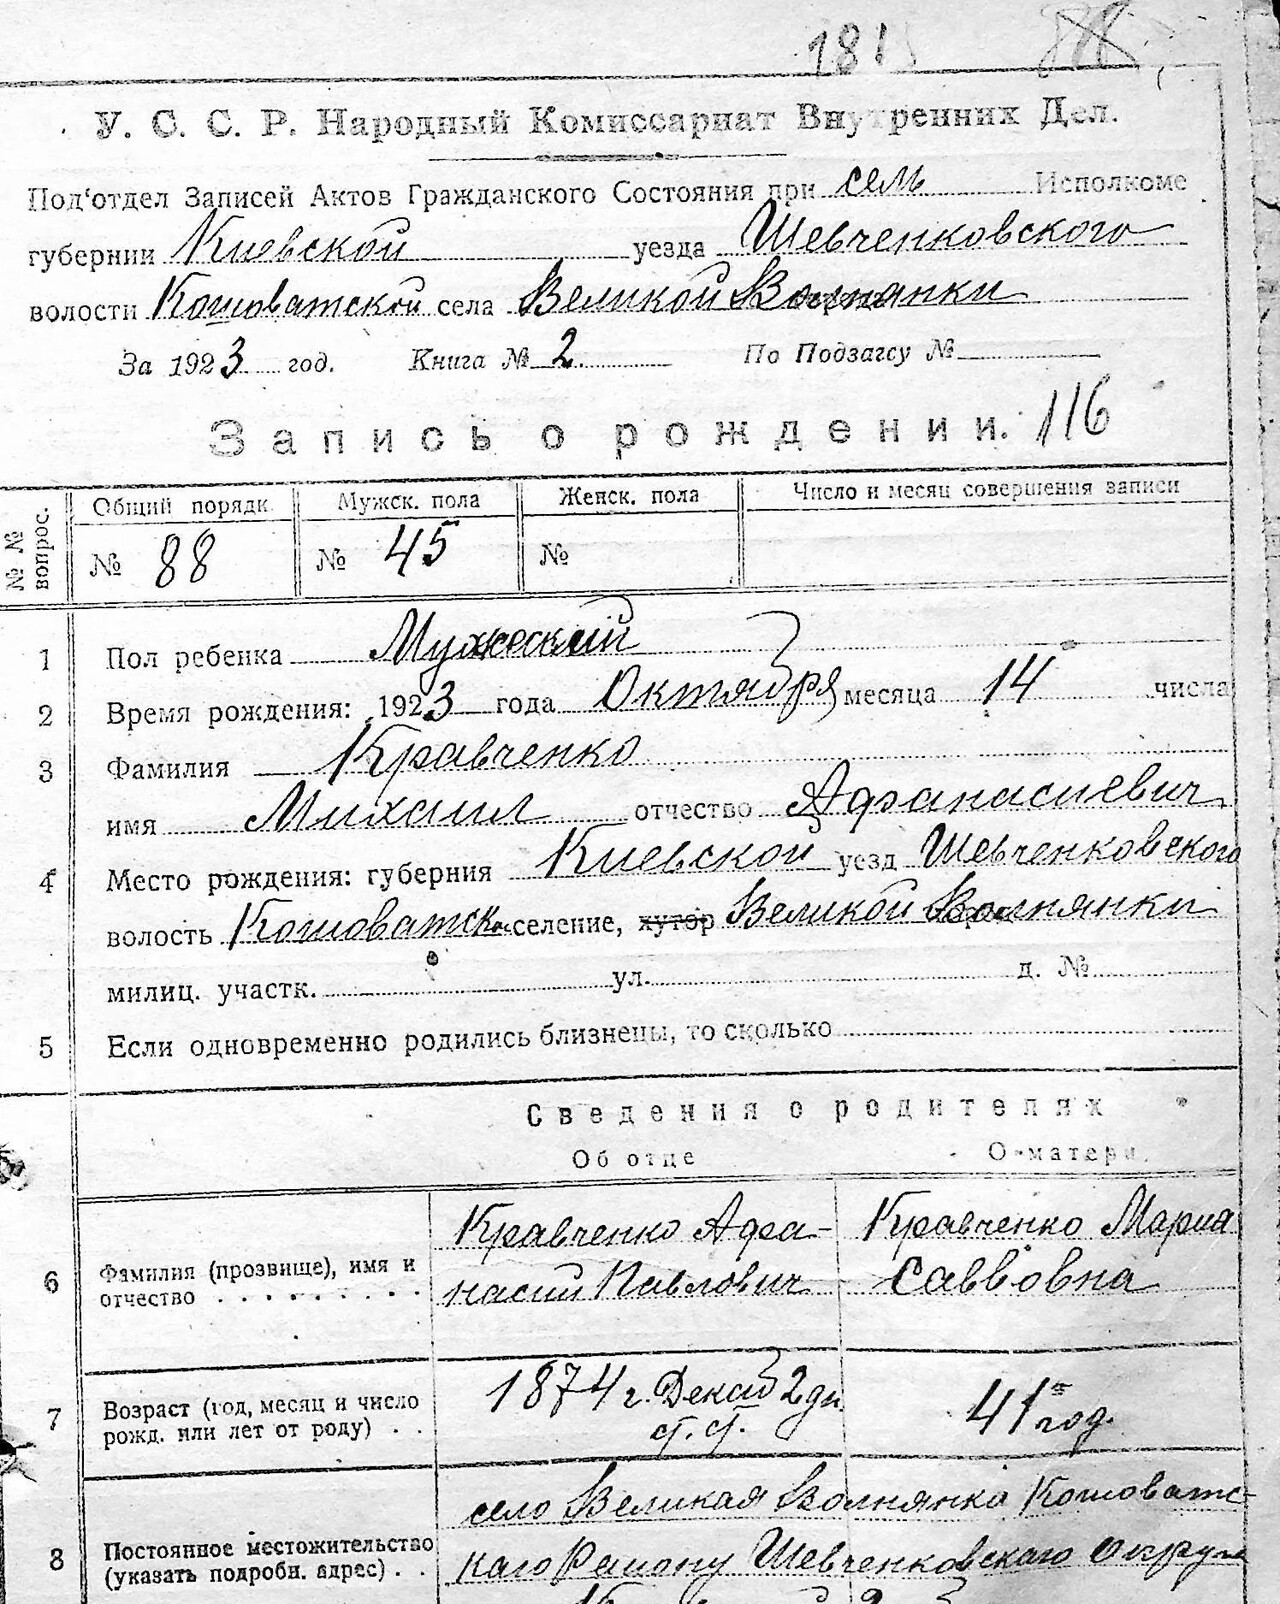 181
88
У. С. С. Р. Народный Комиссариат Внутренних Дел.
Под'отдел Записей Актов Гражданского Состояния при сель Исполкоме
губернии Киевской уезда Шевченковского
волости Кошоватской села Великой Волнянки
За 1923 год. Книга № 2 По Подзагсу №
Запись о рождении. 116
№ № вопрос.
Общий порядк. Мужск. пола Женск. пола Число и месяц совершения записи
№ 88 № 45 №
1 Пол ребенка Мужеский
2 Время рождения: 1923 года Октября месяца 14 числа
3 Фамилия Кравченко
имя Михаил отчество Афанасиевич
4 Место рождения: губерния Киевской уезд Шевченковского
волость Кошоватск селение, хутор Великой Волнянки
милиц. участк. ул. д. №
5 Если одновременно родились близнецы, то сколько
Сведения о родителях
Об отце О матери
Кравченко Афа- Кравченко Мариа
6 Фамилия (прозвище), имя и
отчество . . . . . . . . . насий Павлович Саввовна
1874 г. Декаб 2 дн. 41 год.
7 Возраст (год, месяц и число
рожд. или лет от роду) . .
село Великая Волнянка Кошоватс-
8 Постоянное местожительство
(указать подробн. адрес) . . каго Району Шевченковскаго округа